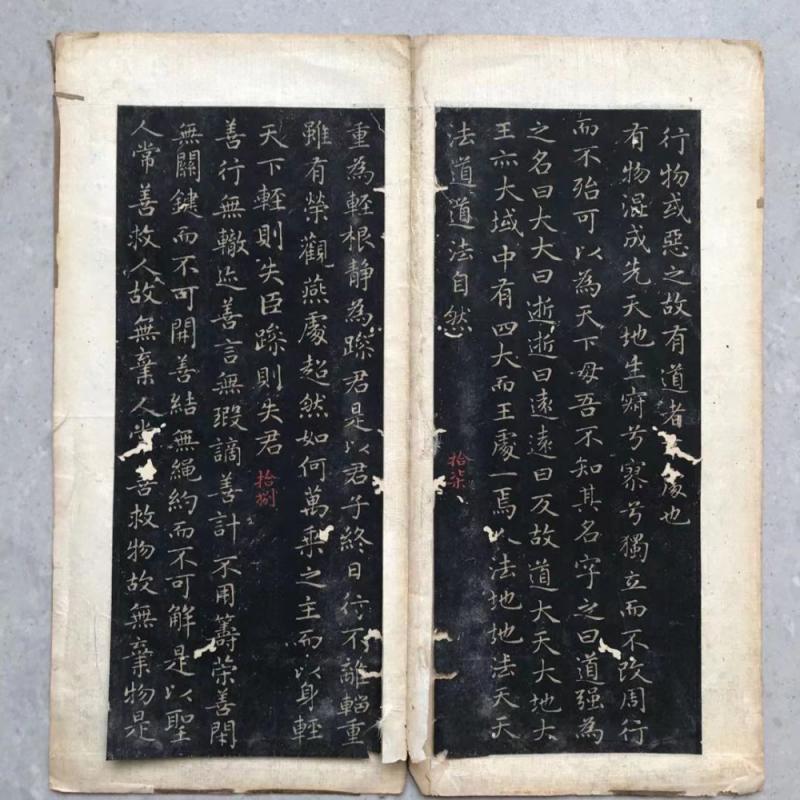 行物或惡之故有道者處也
有物混成先天地生寂兮寥兮獨立而不改周行
而不殆可以為天下母吾不知其名字之曰道强為
之名曰大大曰逝逝曰遠遠曰反故道大天大地大
王亦大域中有四大而王處一焉人法地地法天天
法道道法自然
拾柒
重為輕根静為躁君是以君子終日行不離輜重
雖有榮觀燕處超然如何萬乘之主而以身輕
天下輕則失臣躁則失君
拾捌
善行無轍迹善言無瑕謫善計不用籌策善閇
無關鍵而不可開善結無繩約而不可解是以聖
人常善救人故無棄人常善救物故無棄物是